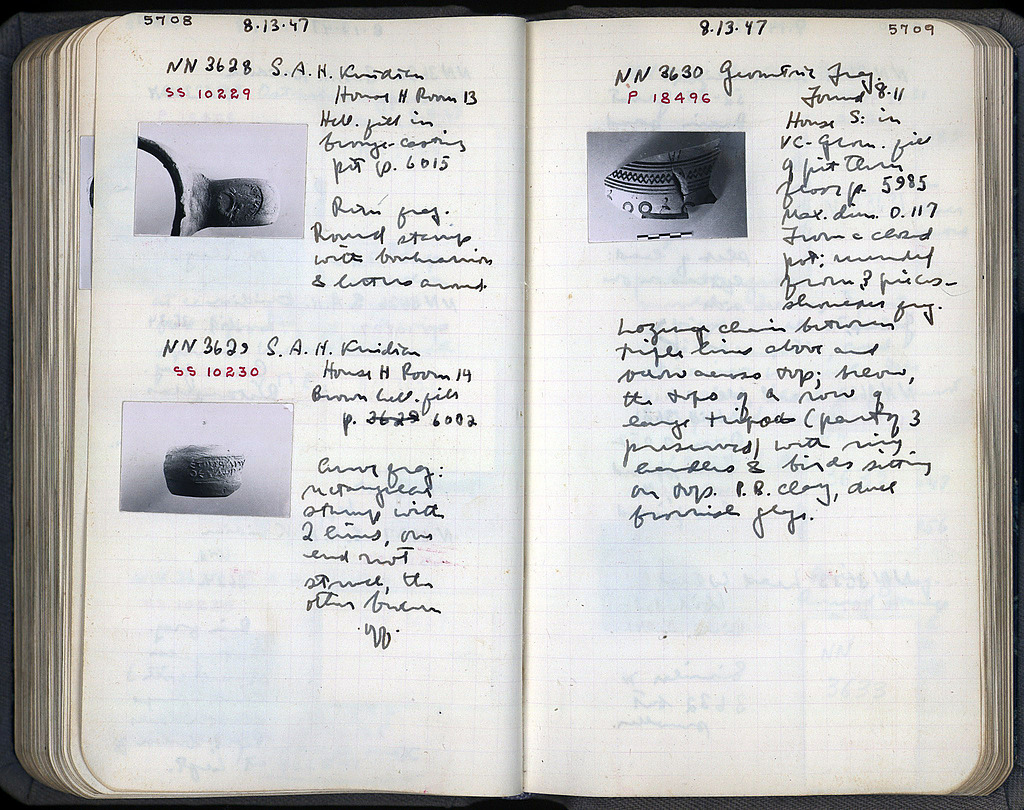 5708
8.13.47
NN 3628 S.A.H. Knidian
SS 10229
House H Room 13
Hell. fill in
bronze-casting
pit p. 6015
Rim frag.
Round stamp
with
& letters around.
NN 3629 S.A.H. Knidian
SS 10230
House H Room 14
Brown hell. fill
p. 3629 6002
Curve frag:
rectangular
stamp with
2 lines, one
end not
struck, the
other broken
off.
8.13.47
5709
NN 3630 Geometric frag.
P 18496
Found 8.11
House S: in
fill
of pit thru
floor p. 5985
Max. dim. 0.117
From a closed
pot; mended
from 3 pieces –
shoulder frag.
Lozenge chain between
triple lines above and
below across top; below,
the tops of a row of
large tripods (part of 3
preserved) with ring
handles & birds sitting
on tops. P.B. clay, dull
brownish glaze.